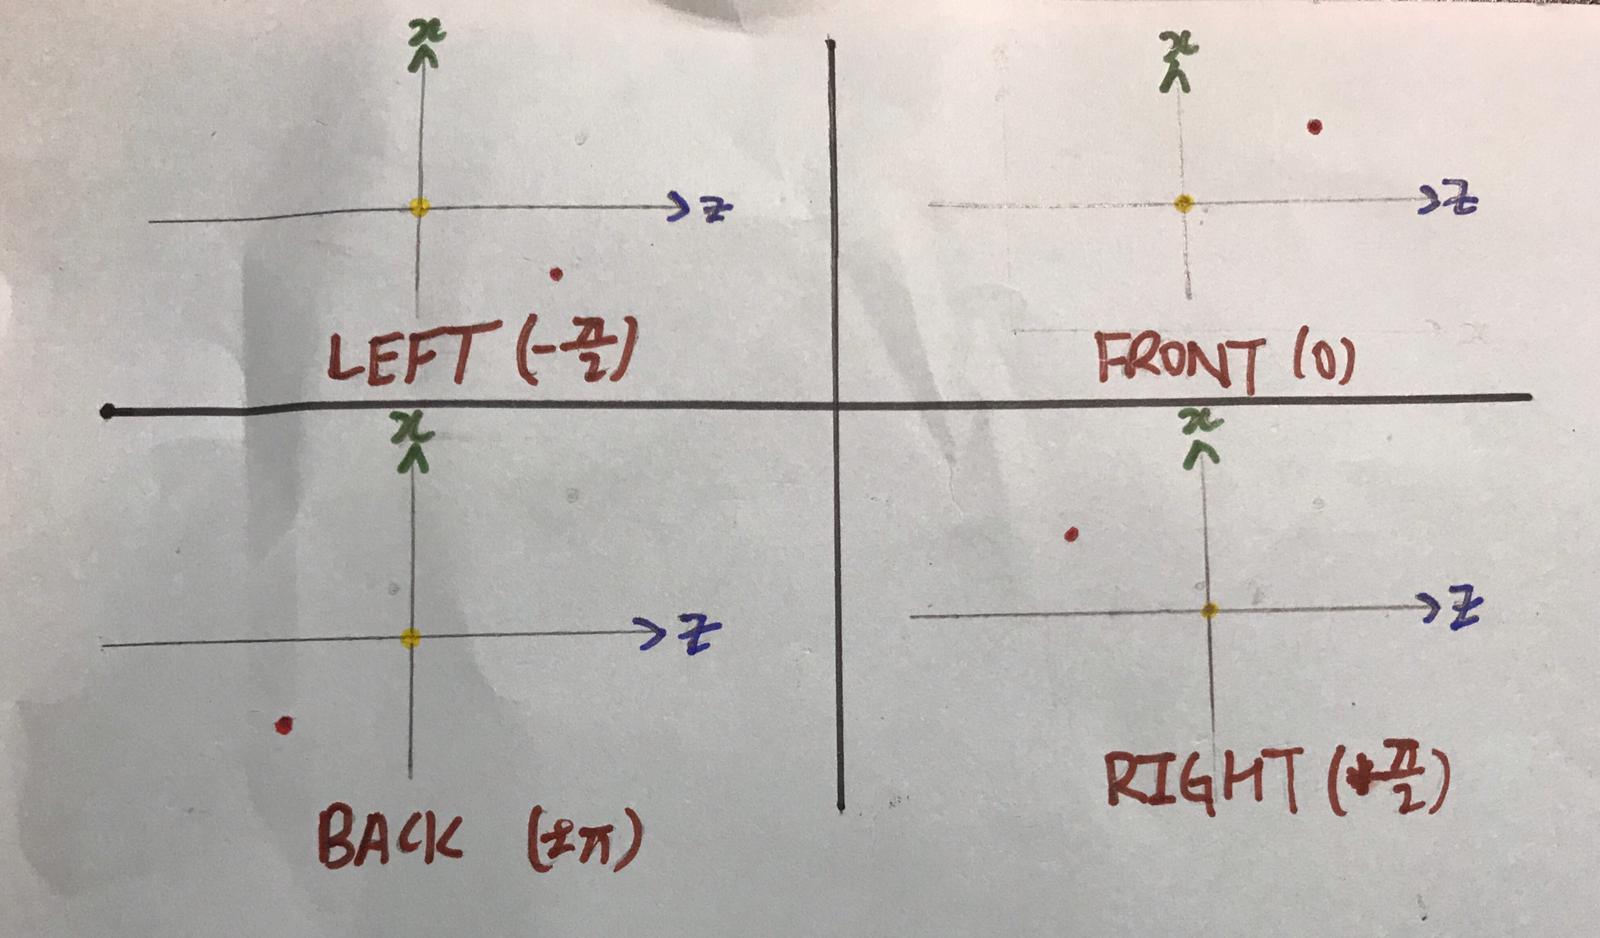 x
z
LEFT (-π/2)
x
z
FRONT (0)
x
z
BACK (±π)
x
z
RIGHT (+π/2)